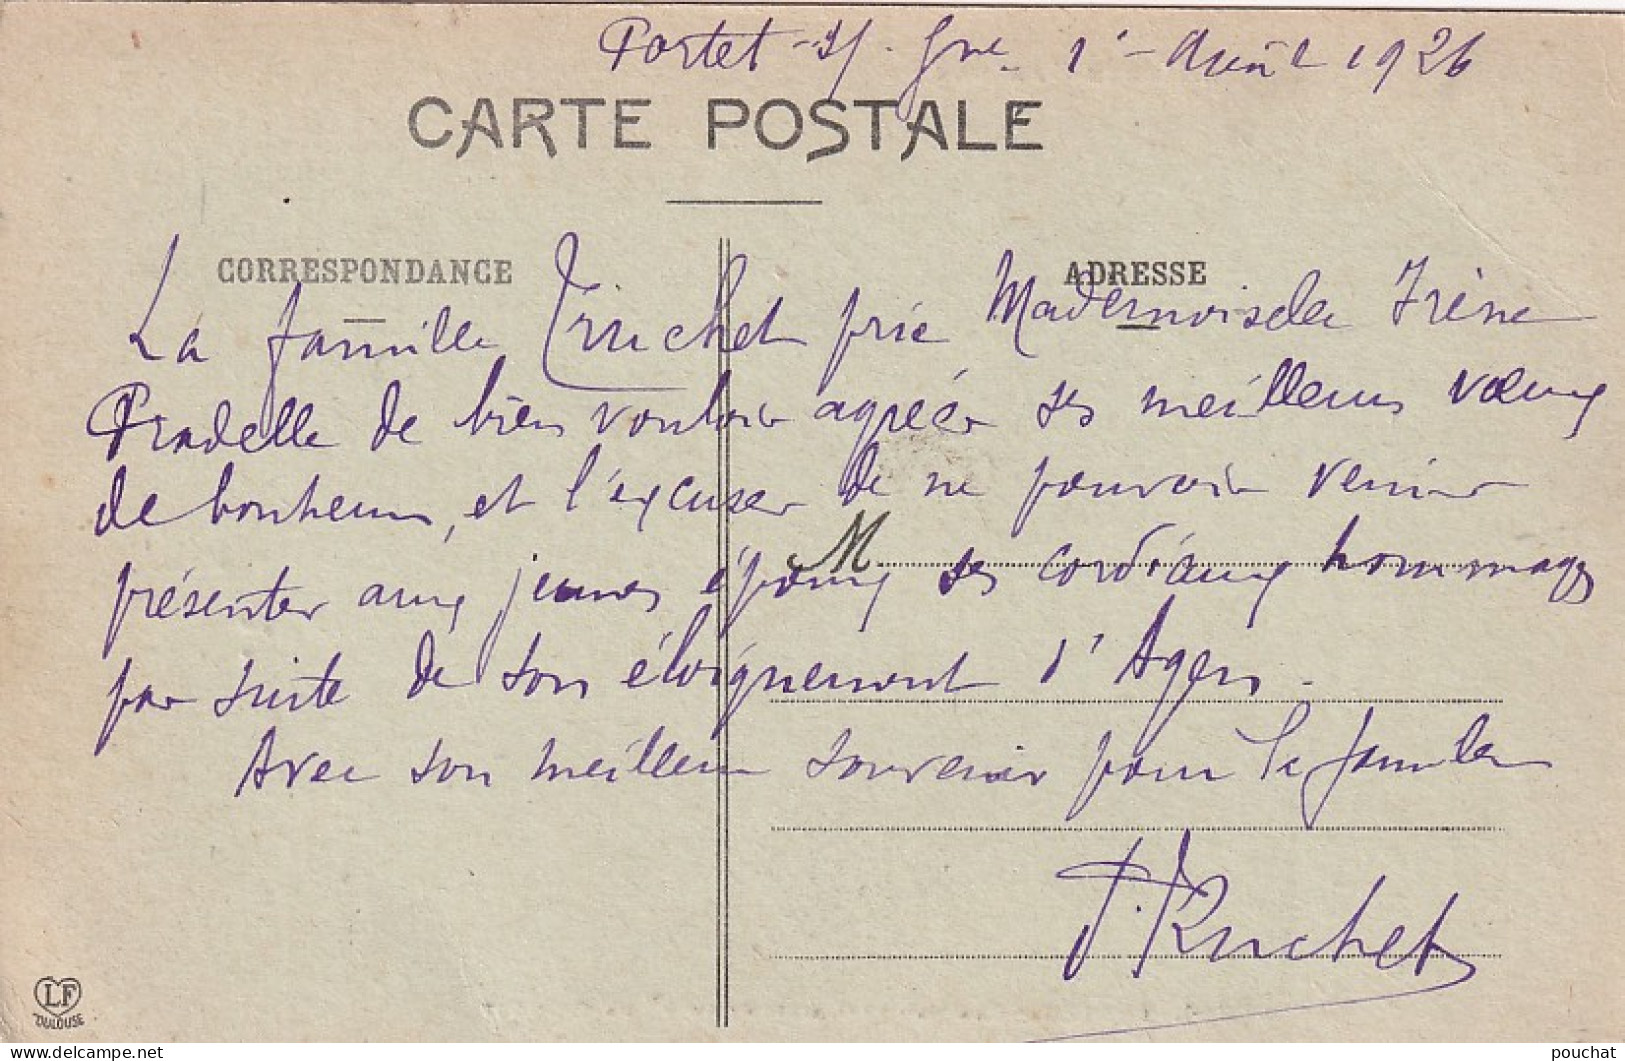 Portet-s/-Gne 1er Août 1926
CARTE POSTALE
CORRESPONDANCE
ADRESSE
La famille Truchet prie Mademoiselle Irène
Pradelle de bien vouloir agréer ses meilleurs vœux
de bonheur, et l'excuser de ne pouvoir venir
M
présenter aux jeunes époux ses cordiaux hommages
par suite de son éloignement d'Agen.
Avec son meilleur souvenir pour la famille
Truchet
LF
TOULOUSE
delcampe.net
pouchat